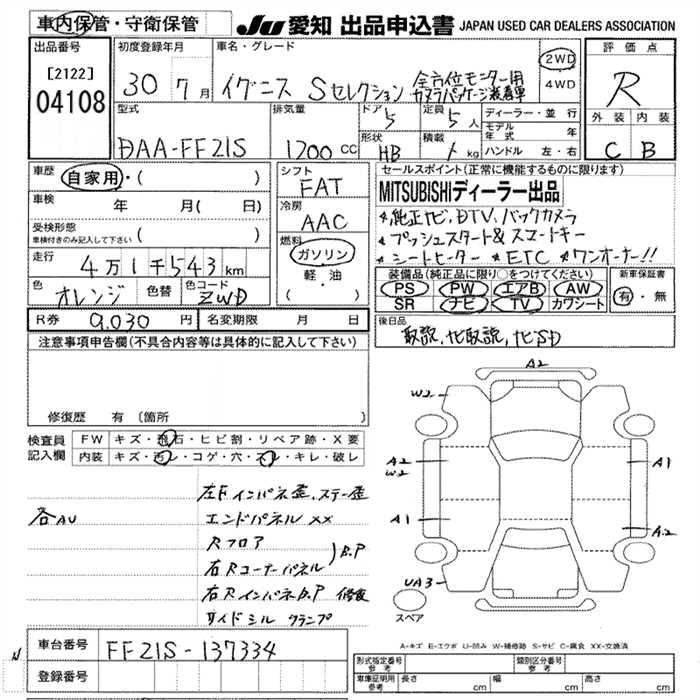 車内保管・守衛保管
JU 愛知 出品申込書 JAPAN USED CAR DEALERS ASSOCIATION
出品番号
[2122]
04108
初度登録年月
30 年 7 月
車名・グレード
イグニス Sセレクション 全方位モニター用
カメラパッケージ装着車
2WD
・
4WD
評価点
R
外装 内装
C B
型式
DAA-FF21S
排気量
1200 CC
ドア
5
定員
5 人
形状
HB
積載
kg
ディーラー・並行
モデル年式 年
ハンドル 左・右
車歴
自家用・( )
車検 年 月( 日)
受検形態
車検付きのみ記入して下さい ( )
走行
4万1千543km
色
オレンジ
色替
色コード
ZWD
シフト
FAT
冷房
AAC
燃料
ガソリン
・
軽・油
( )
セールスポイント(正常に機能するものに限ります)
MITSUBISHIディーラー出品
*純正ナビ、DTV、バックカメラ
*プッシュスタート&スマートキー
*シートヒーター *ETC *ワンオーナー!!
装備品(純正品に限り○をつけてください)
PS PW エアB AW
SR ナビ TV カワシート
新車保証書
有・無
R券 9,030 円
名変期限 月 日
後日品
取説、ナビ取説、ナビSD
注意事項申告欄(不具合内容等は具体的に記入して下さい)
修復歴 有 〔箇所 〕
検査員記入欄
FW キズ・飛石・ヒビ割・リペア跡・X要
内装 キズ・汚レ・コゲ・穴・スレ・キレ・破レ
各AU
左Fインパネ歪、ステー歪
エンドパネル XX
Rフロア
右Rコーナーパネル
)B.P
右RインパネB.P 修復
サイドシル クランプ
A2
W2
A2
W2
A1
A1
A2
UA3
スペア
A-キズ E-エクボ U-凹み W-補修跡 S-サビ C-腐食 XX-交換済
車台番号 FF21S-137334
登録番号
形式指定番号
参考
類別区分番号
参考
車庫証明用
参考
長さ cm 幅 cm 高さ cm